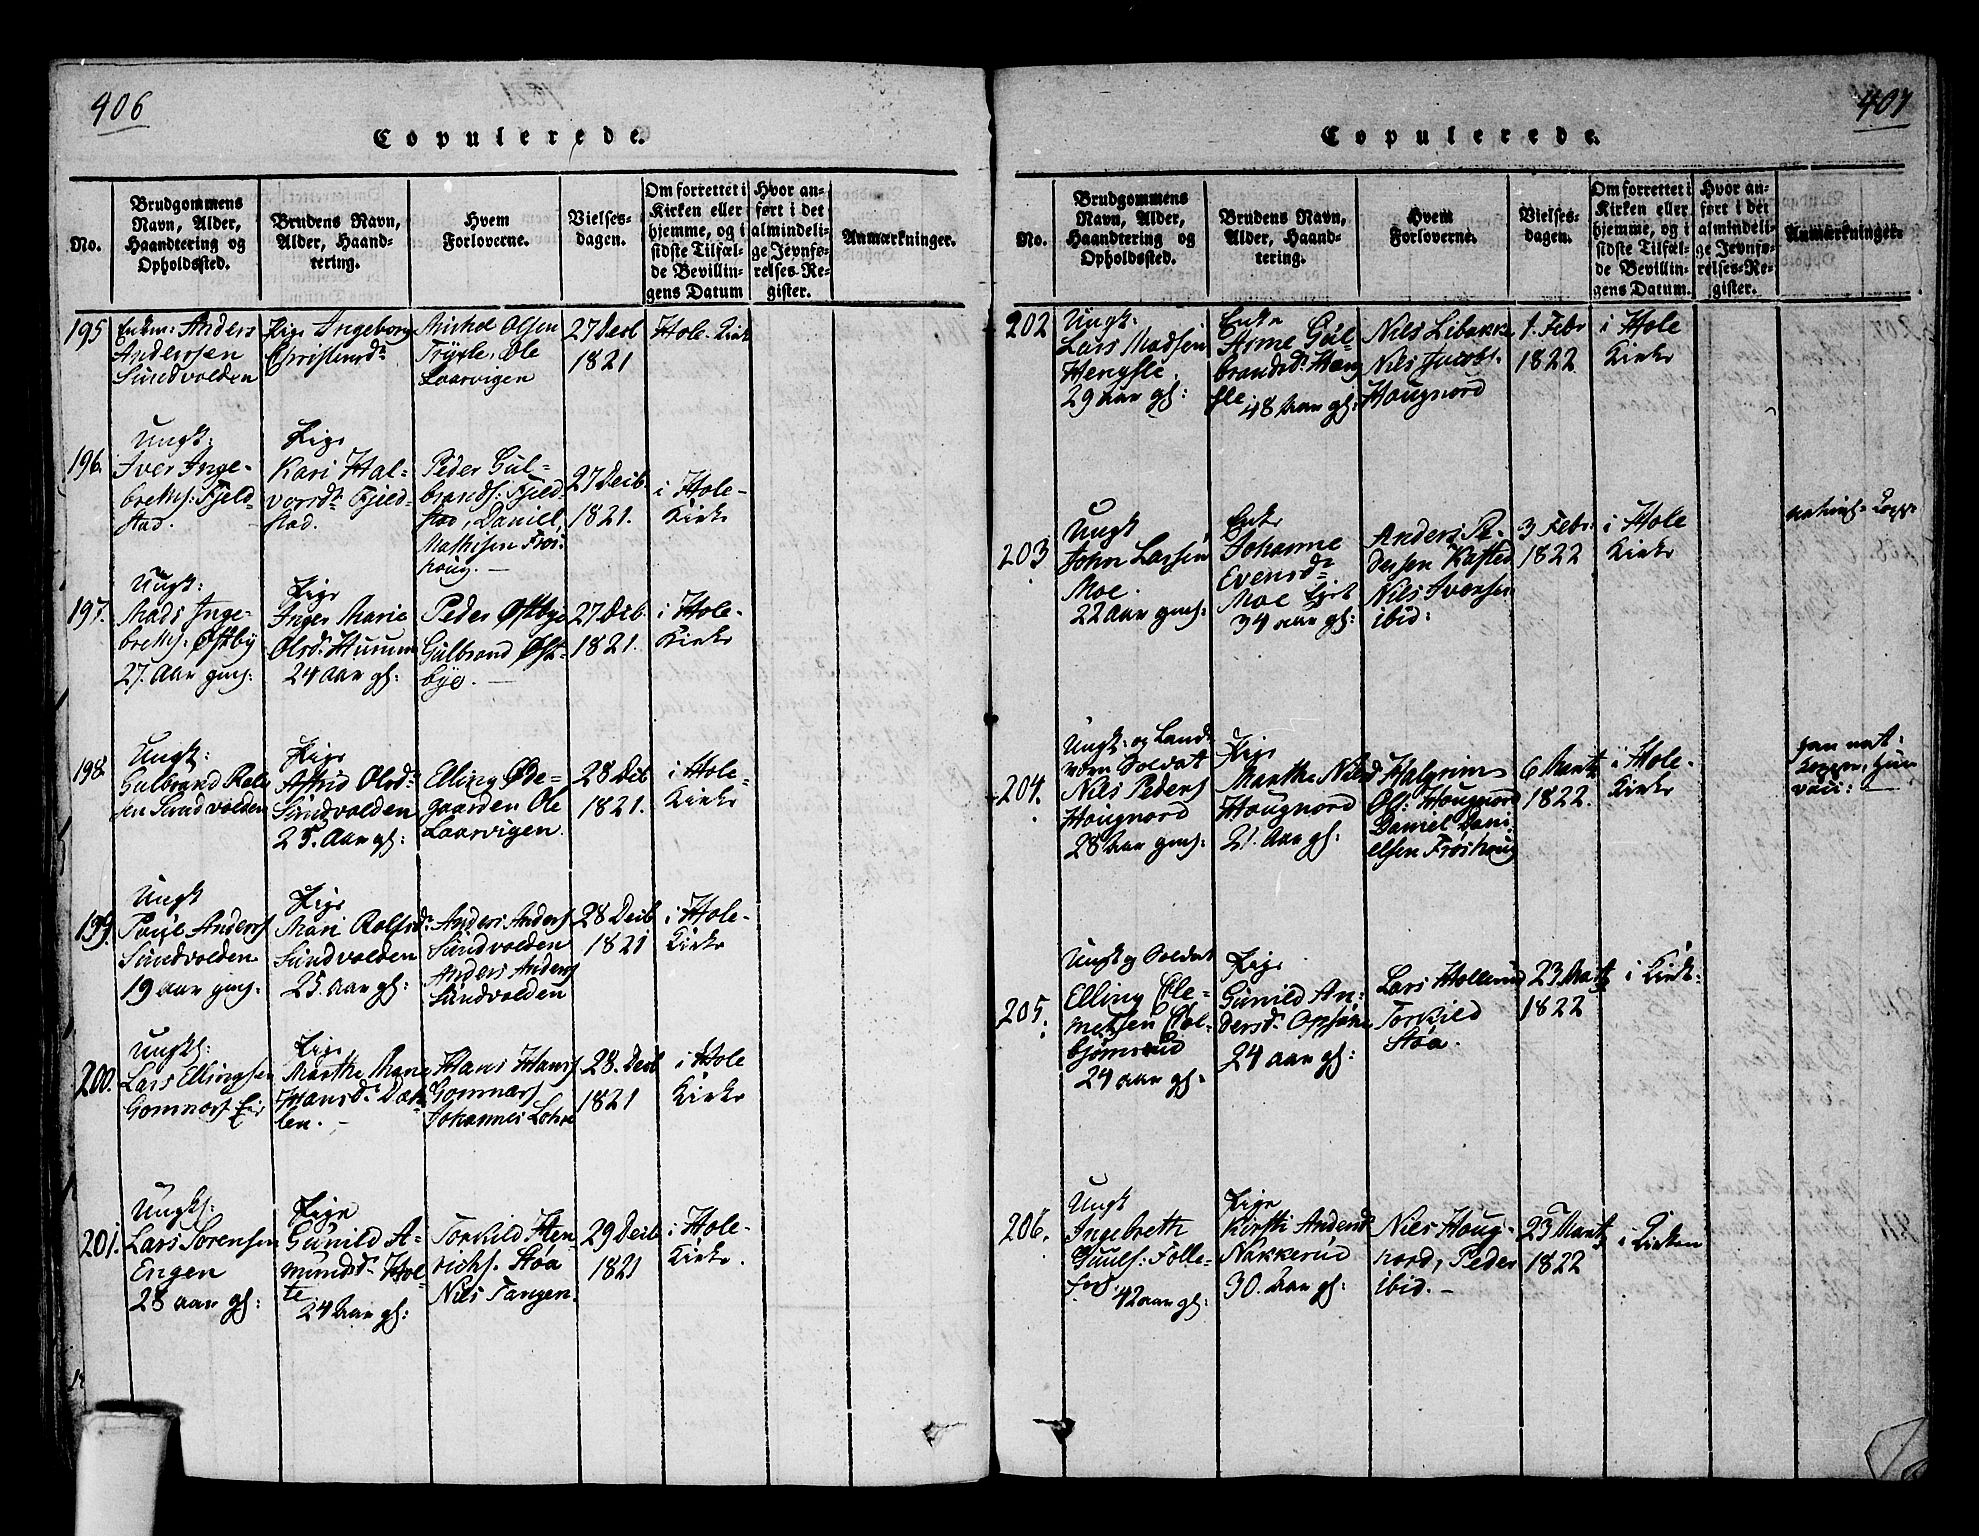 406
Copulerede.
No.
Brudgommens
Navn, Alder,
Haandtering og
Opholdssted.
Brudens Navn,
Alder, Haand-
tering.
Hvem
Forloverne.
Vielses-
dagen.
Om forrettet i
Kirken eller
hjemme, og i
sidste Tilfæl-
de Bevillin-
gens Datum
Hvor an-
ført i det
almindeli-
ge Jevnfø-
relses-Re-
gister.
Anmærkninger.
195
Enkem: Anders
Anderssen
Sundvolden
Pige Ingeborg
Christensd:
Michel Olsen
Tryxle, Ole
Laarvigen
27 Decb
1821
Hole-Kirk
196.
Ungk:
Iver Inge-
brethS: Fjeld-
stad.
Pige
Kari Hal-
vorsd: Fjeld-
stad.
Peder Gul-
brandS: Fjeld-
stad, Daniel
Mathisen Frøs-
houg.
27 Decb.
1821.
i Hole-
Kirke
197.
Ungk:
Mads Inge-
brethS: Østby
27. Aar gml:
Pige
Inger Marie
Olsd: Hurum
24 Aar gl:
Peder Østbye
Gulbrand Øst-
bye.
27 Deb.
1821.
i Hole-
Kirke
198.
Ungk:
Gulbrand
Sundvolden
Pige
Astrid Olsd:
Sundvolden
25. Aar gl:
Elling Øde-
gaarden Ole
Laarvigen.
28 Deb
1821.
i Hole-
Kirke
199.
Ungk
Poul AndersS
Sundvolden
19 aar gml.
Pige
Mari Rolfsd:
Sundvolden
25. Aar gl:
Anders AndersS
Sundvolden
Anders AndersS
Sundvolden
28 Decb
1821
i Hole-
Kirke
200.
Ungk:
Lars Ellingsen
Gomnæs Eie
Pige
Marthe Marie
Hansd: Dæh-
len.
Hans HansS
Gomnæs
Johannes Lohre
28. Decb
1821
i Hole
Kirke
201.
Ungk:
Lars Sørensen
Engen
28 aar gl:
Pige
Gunild A-
mundsd: Hol-
te
24 Aar gl:
Torkild Hen-
richs. Støa
Nils Tangen.
29 Decb
1821
i Hole-
Kirke.
407
Copulerede.
No.
Brudgommens
Navn, Alder,
Haandtering og
Opholdssted.
Brudens Navn,
Alder, Haand-
tering.
Hvem
Forloverne.
Vielses-
dagen.
Om forrettet i
Kirken eller
hjemme, og i
sidste Tilfæl-
de Bevillin-
gens Datum.
Hvor an-
ført i det
almindeli-
ge Jevnfø-
relses-Re-
gister.
Anmærkninger.
202
Ungk:
Lars Madsen
Hengsle.
29 Aar gl:
Enke
Anne Gul-
brandsd: Heng-
sle 48 Aar gl:
Nils Libakke
Nils Jacobs.
Hougnord
1. Febr
1822
i Hole
Kirke
203
Ungk
John Larsen
Moe.
22 Aar gml:
Enke
Johanne
Evensd:
Moe
34 aar gl:
Anders Pe-
dersen Kasted
Nils Iversen
ibid:
3 Febr:
1822
i Hole
Kirke
204.
Ungk: og Land-
værn Soldat
Nils PedersS
Hougnord
28 Aar gml:
Pige
Marthe Nilsd
Hougnord
21. Aar gl:
Halgrim
Ol: Hougnord
Daniel Dani-
elsen Frøshoug
6 Martz
1822.
i Hole-
Kirke
205.
Ungk og Soldat
Elling Cle-
metsen Col-
bjørnsrud
24 aar gl:
Pige
Gunild An-
dersd: Opsen
24 aar gl:
Lars Hollerud
Torkild
Støa.
23 Martz
1822
i Kirk:
206.
Ungk
Ingebreth
PoulS: Folle-
42 aar gl:
Pige
Kirsti Andersd
Nakkerud
30. Aar gl:
Nils Houg-
nord, Peder
ibid.
23 Martz
1822
i Kirken